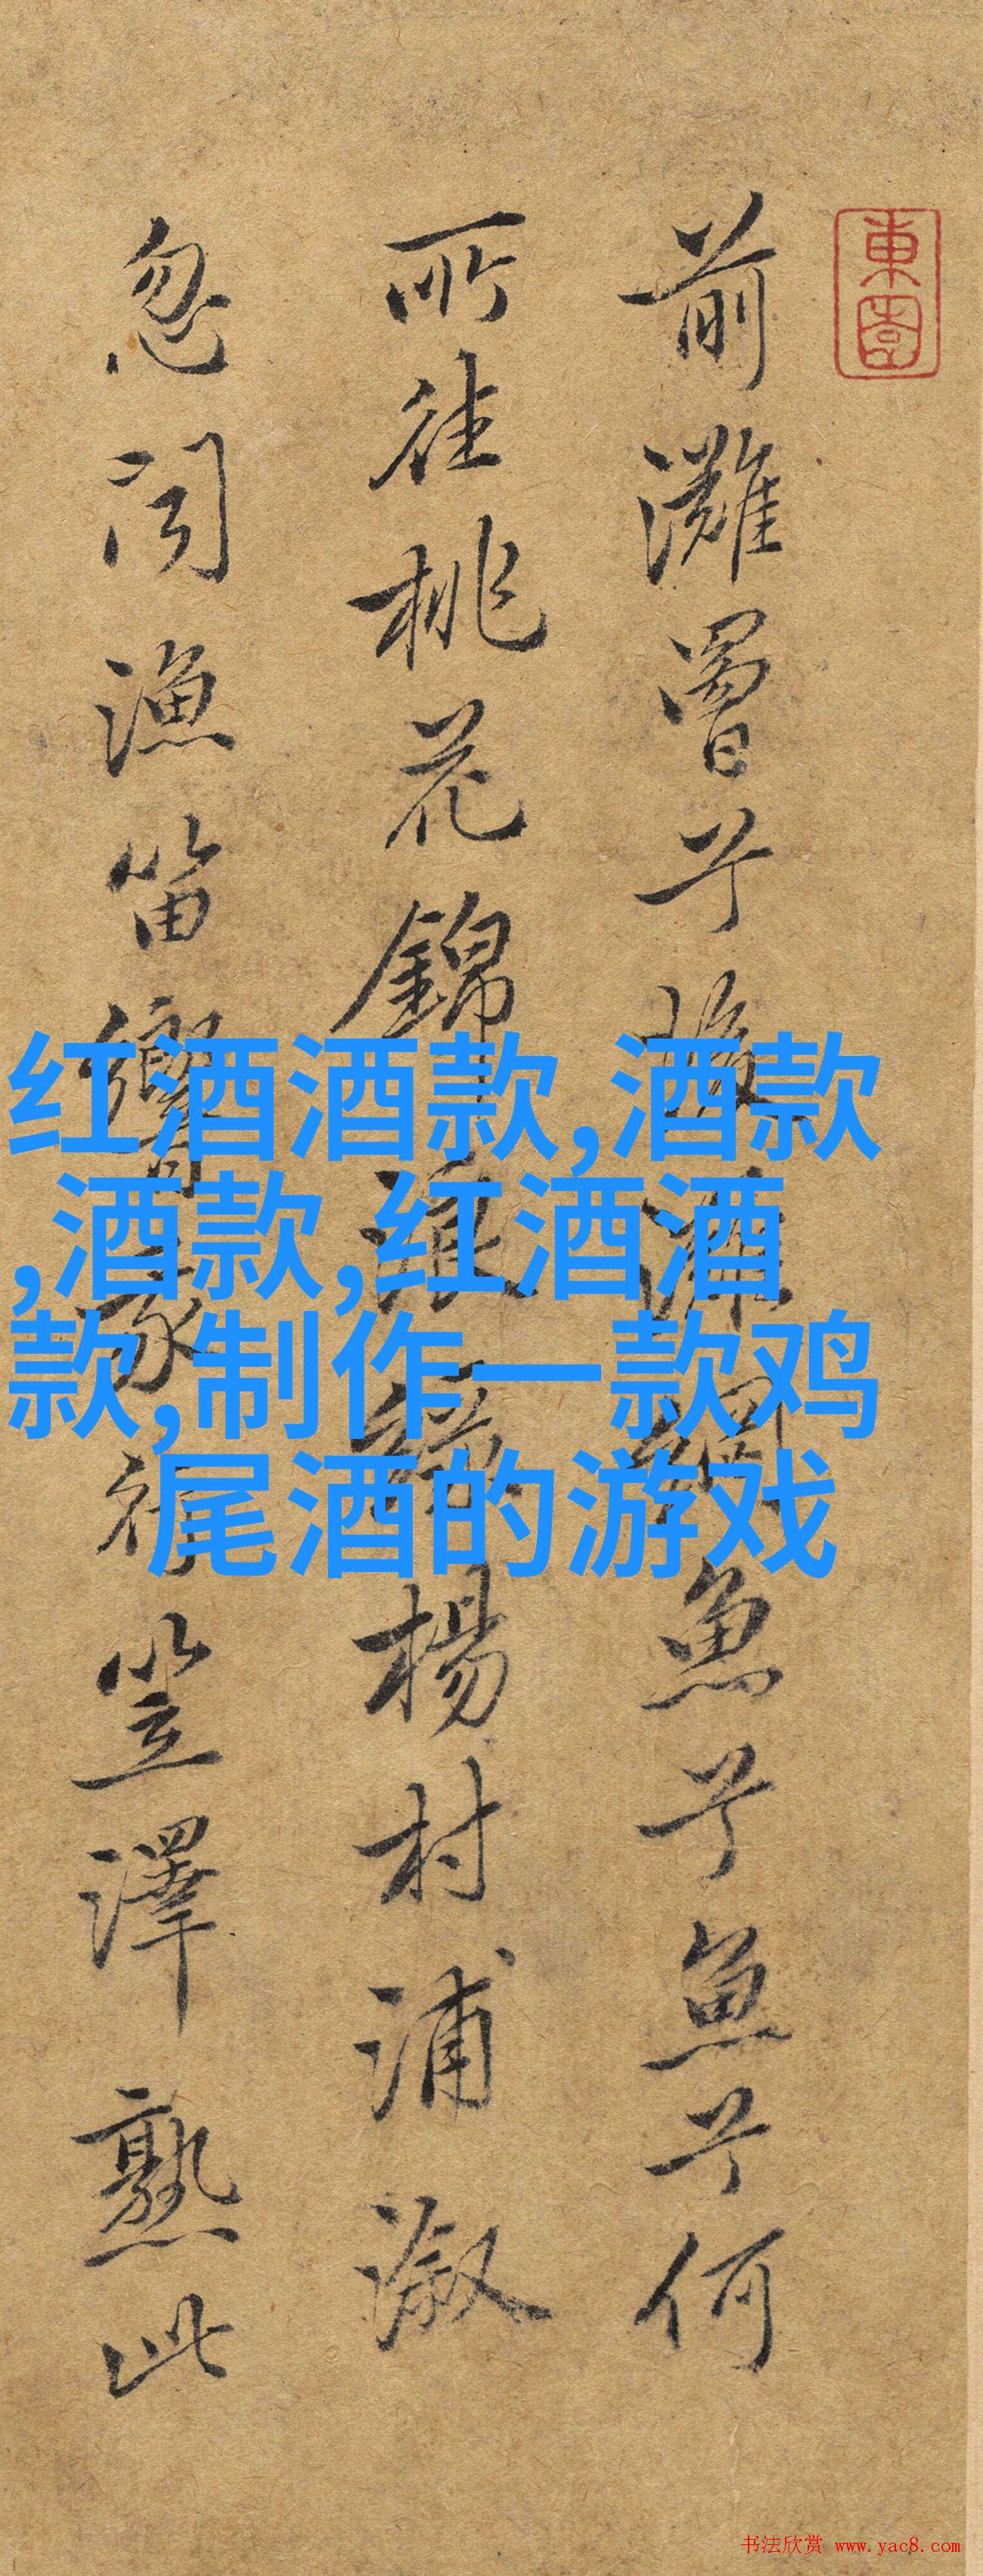 東園
前灘罾兮後灘網魚兮魚兮何
所往桃花錦浪綠楊村浦溆
忽闻漁笛響我行笠澤熟此
红酒酒款,酒款
,酒款,红酒酒
款,制作一款鸡
尾酒的游戏
书法欣赏 www.yac8.com